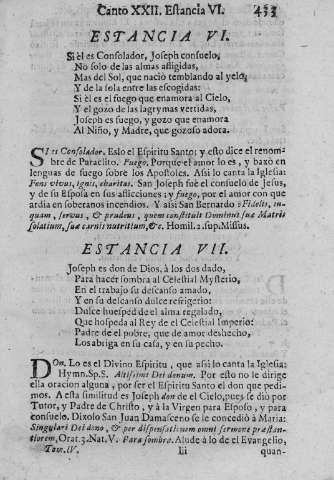 Canto XXII. Estancia VI. 433
ESTANCIA VI.
Si èl es Consolador, Joseph consuelo,
No solo de las almas afligidas,
Mas del Sol, que naciò temblando al yelo,
Y de la sola entre las escogidas:
Si èl es el fuego que enamora al Cielo,
Y el gozo de las lagrymas vertidas,
Joseph es fuego, y gozo que enamora
Al Niño, y Madre, que gozosa adora.
SI es Consolador. Eslo el Espiritu Santo; y esto dice el renom-
bre de Paraclito. Fuego. Porque el amor lo es, y baxò en
lenguas de fuego sobre los Apostoles. Assi lo canta la Iglesia:
Fons vivus, ignis, charitas. San Joseph fuè el consuelo de Jesus,
y de su Esposa en sus aflicciones; y fuego, por el amor con que
ardia en soberanos incendios. Y assi San Bernardo: Fidelis, in-
quam, servus, & prudens, quem constituit Dominus suæ Matris
solatium, suæ carnis nutritium, &c. Homil. 2. sup. Missus.
ESTANCIA VII.
Joseph es don de Dios, à los dos dado,
Para hacer sombra al Celestial Mysterio,
En el trabajo su descanso amado,
Y en su descanso dulce refrigerio:
Dulce huesped de el alma regalado,
Que hospeda al Rey de el Celestial Imperio:
Padre de el pobre, que de amor deshecho,
Los abriga en su casa, y en su pecho.
DOn. Lo es el Divino Espiritu, que assi lo canta la Iglesia:
Hymn. Sp. S. Altissimi Dei donum. Por esto no le dirige
ella oracion alguna, por ser el Espiritu Santo el don que pedi-
mos. A esta similitud es Joseph don de el Cielo, pues se diò por
Tutor, y Padre de Christo, y à la Virgen para Esposo, y para
consuelo. Dixolo San Juan Damasceno se le concediò à Maria:
Singulari Dei dono, & per dispensationem omni sermone præstan-
tiorem, Orat. 3. Nat. V. Para sombra. Alude à lo de el Evangelio,
Tom. IV. Iii quan-